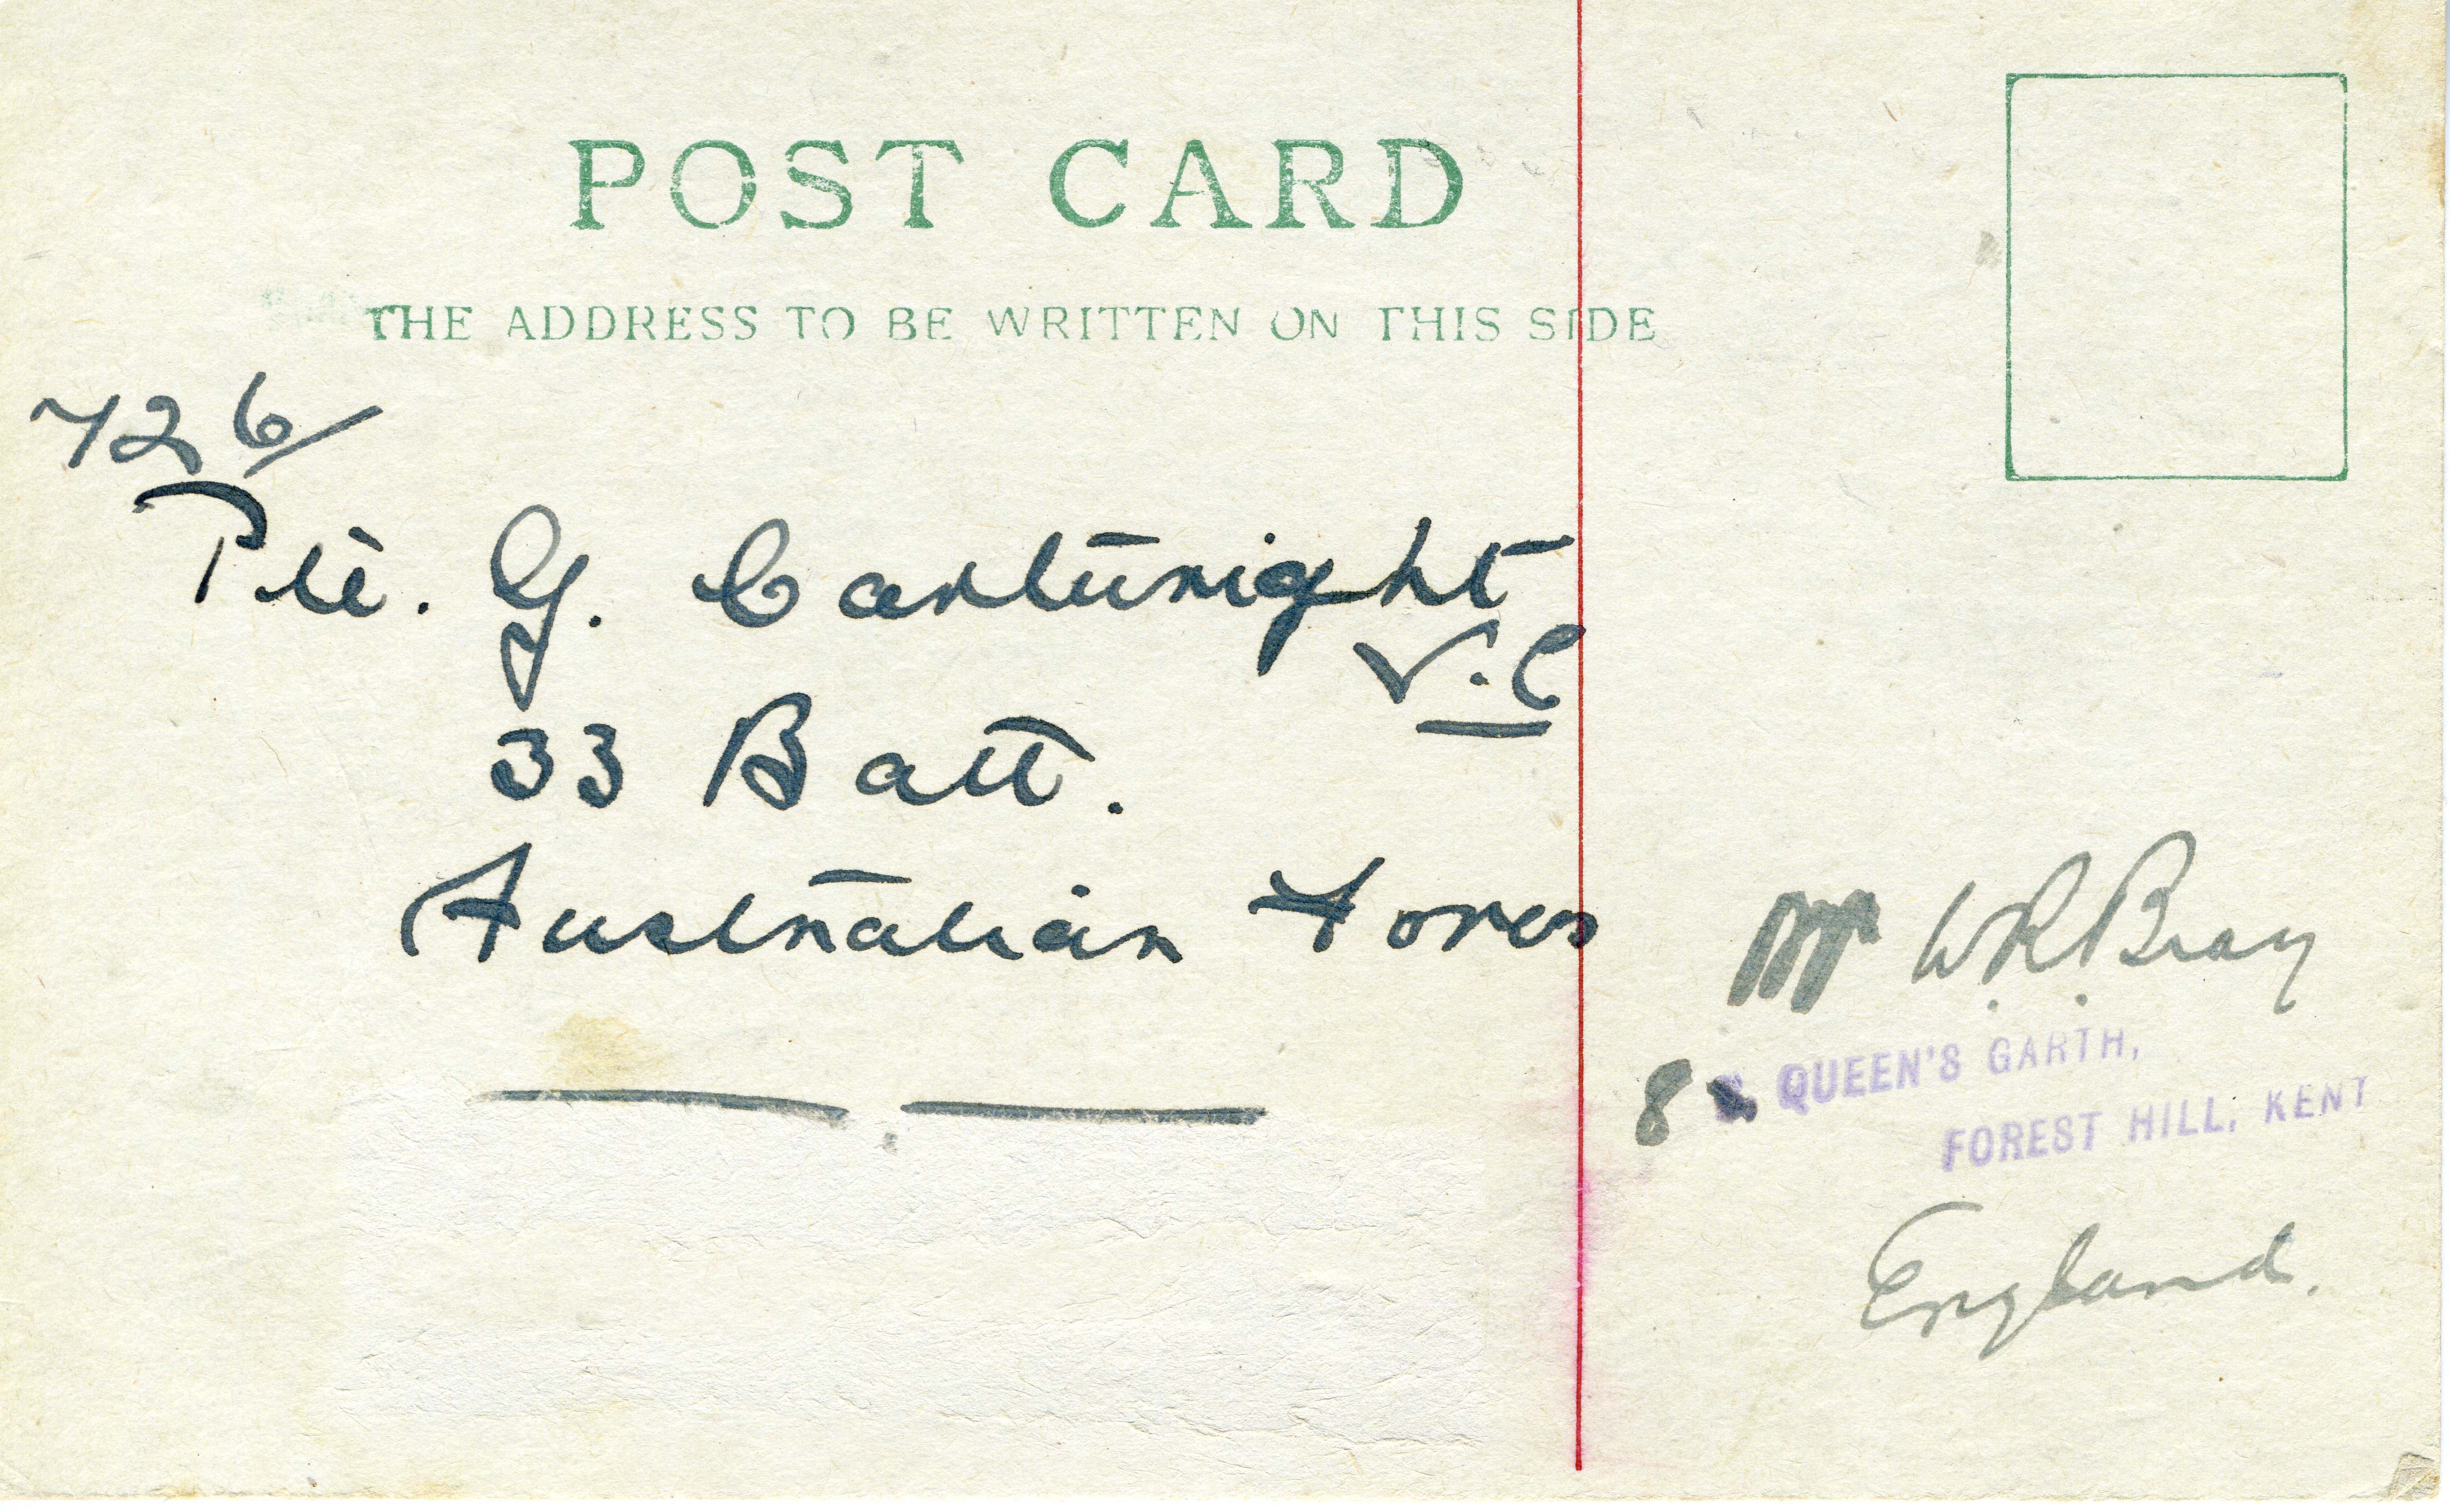 POST CARD
THE ADDRESS TO BE WRITTEN ON THIS SIDE
726/
Pte. G. Cartwright
V.C
33 Batt.
Australian Forces
Mr W.R.Bray
8 QUEEN'S GARTH,
FOREST HILL, KENT
England.